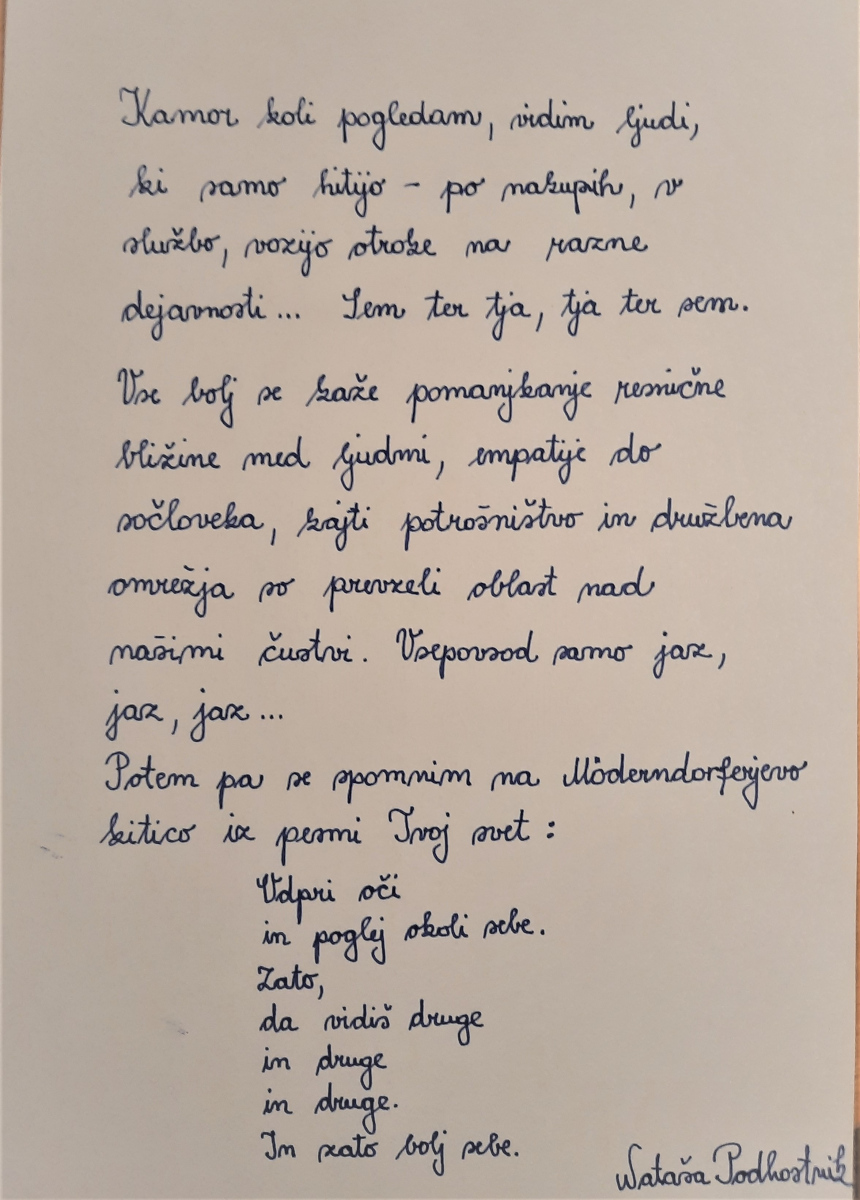 Kamor koli pogledam, vidim ljudi,
ki samo hitijo - po nakupih, v
službo, vozijo otroke na razne
dejavnosti... Sem ter tja, tja ter sem.
Vse bolj se kaže pomanjkanje resnične
bližine med ljudmi, empatije do
sočloveka, kajti potrošništvo in družbena
omrežja so prevzeli oblast nad
našimi čustvi. Vsepovsod samo jaz,
jaz, jaz...
Potem pa se spomnim na Möderndorferjevo
kitico iz pesmi Tvoj svet:
Odpri oči
in poglej okoli sebe.
Zato,
da vidiš druge
in druge
in druge.
In zato bolj sebe.
Nataša Podhostnik